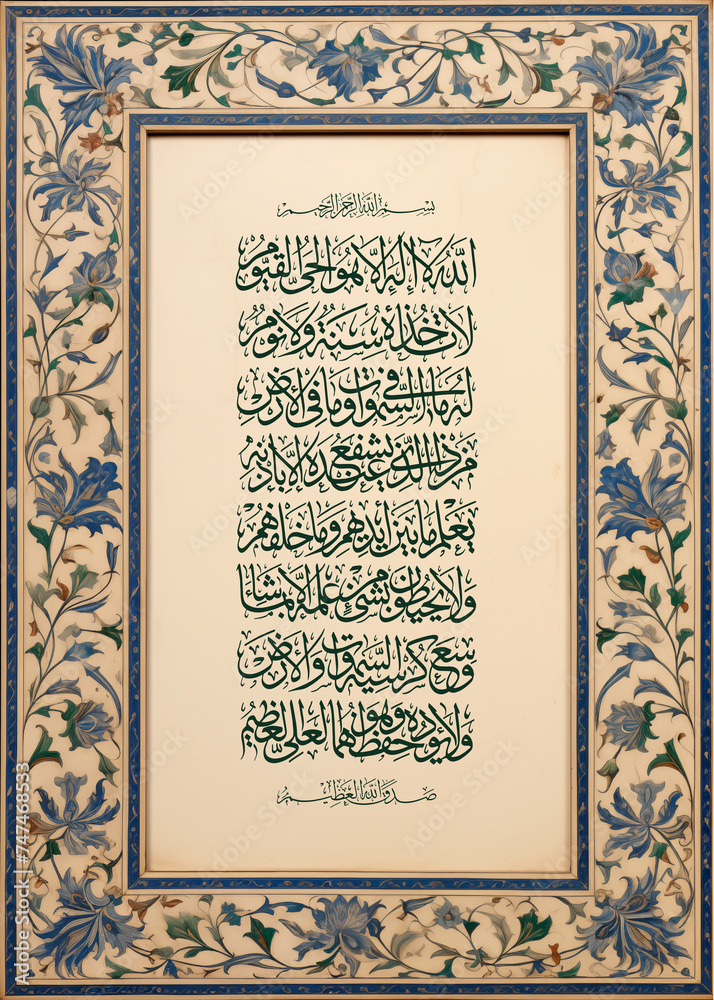 بسم الله الرحمن الرحيم
الله لا إله إلا هو الحي القيوم
لا تأخذه سنة ولا نوم
له ما في السموات وما في الأرض
من ذا الذي يشفع عنده إلا بإذنه
يعلم ما بين أيديهم وما خلفهم
ولا يحيطون بشيء من علمه إلا بما شاء
وسع كرسيه السموات والأرض
ولا يؤده حفظهما وهو العلي العظيم
صدق الله العظيم
Adobe Stock | #747468533